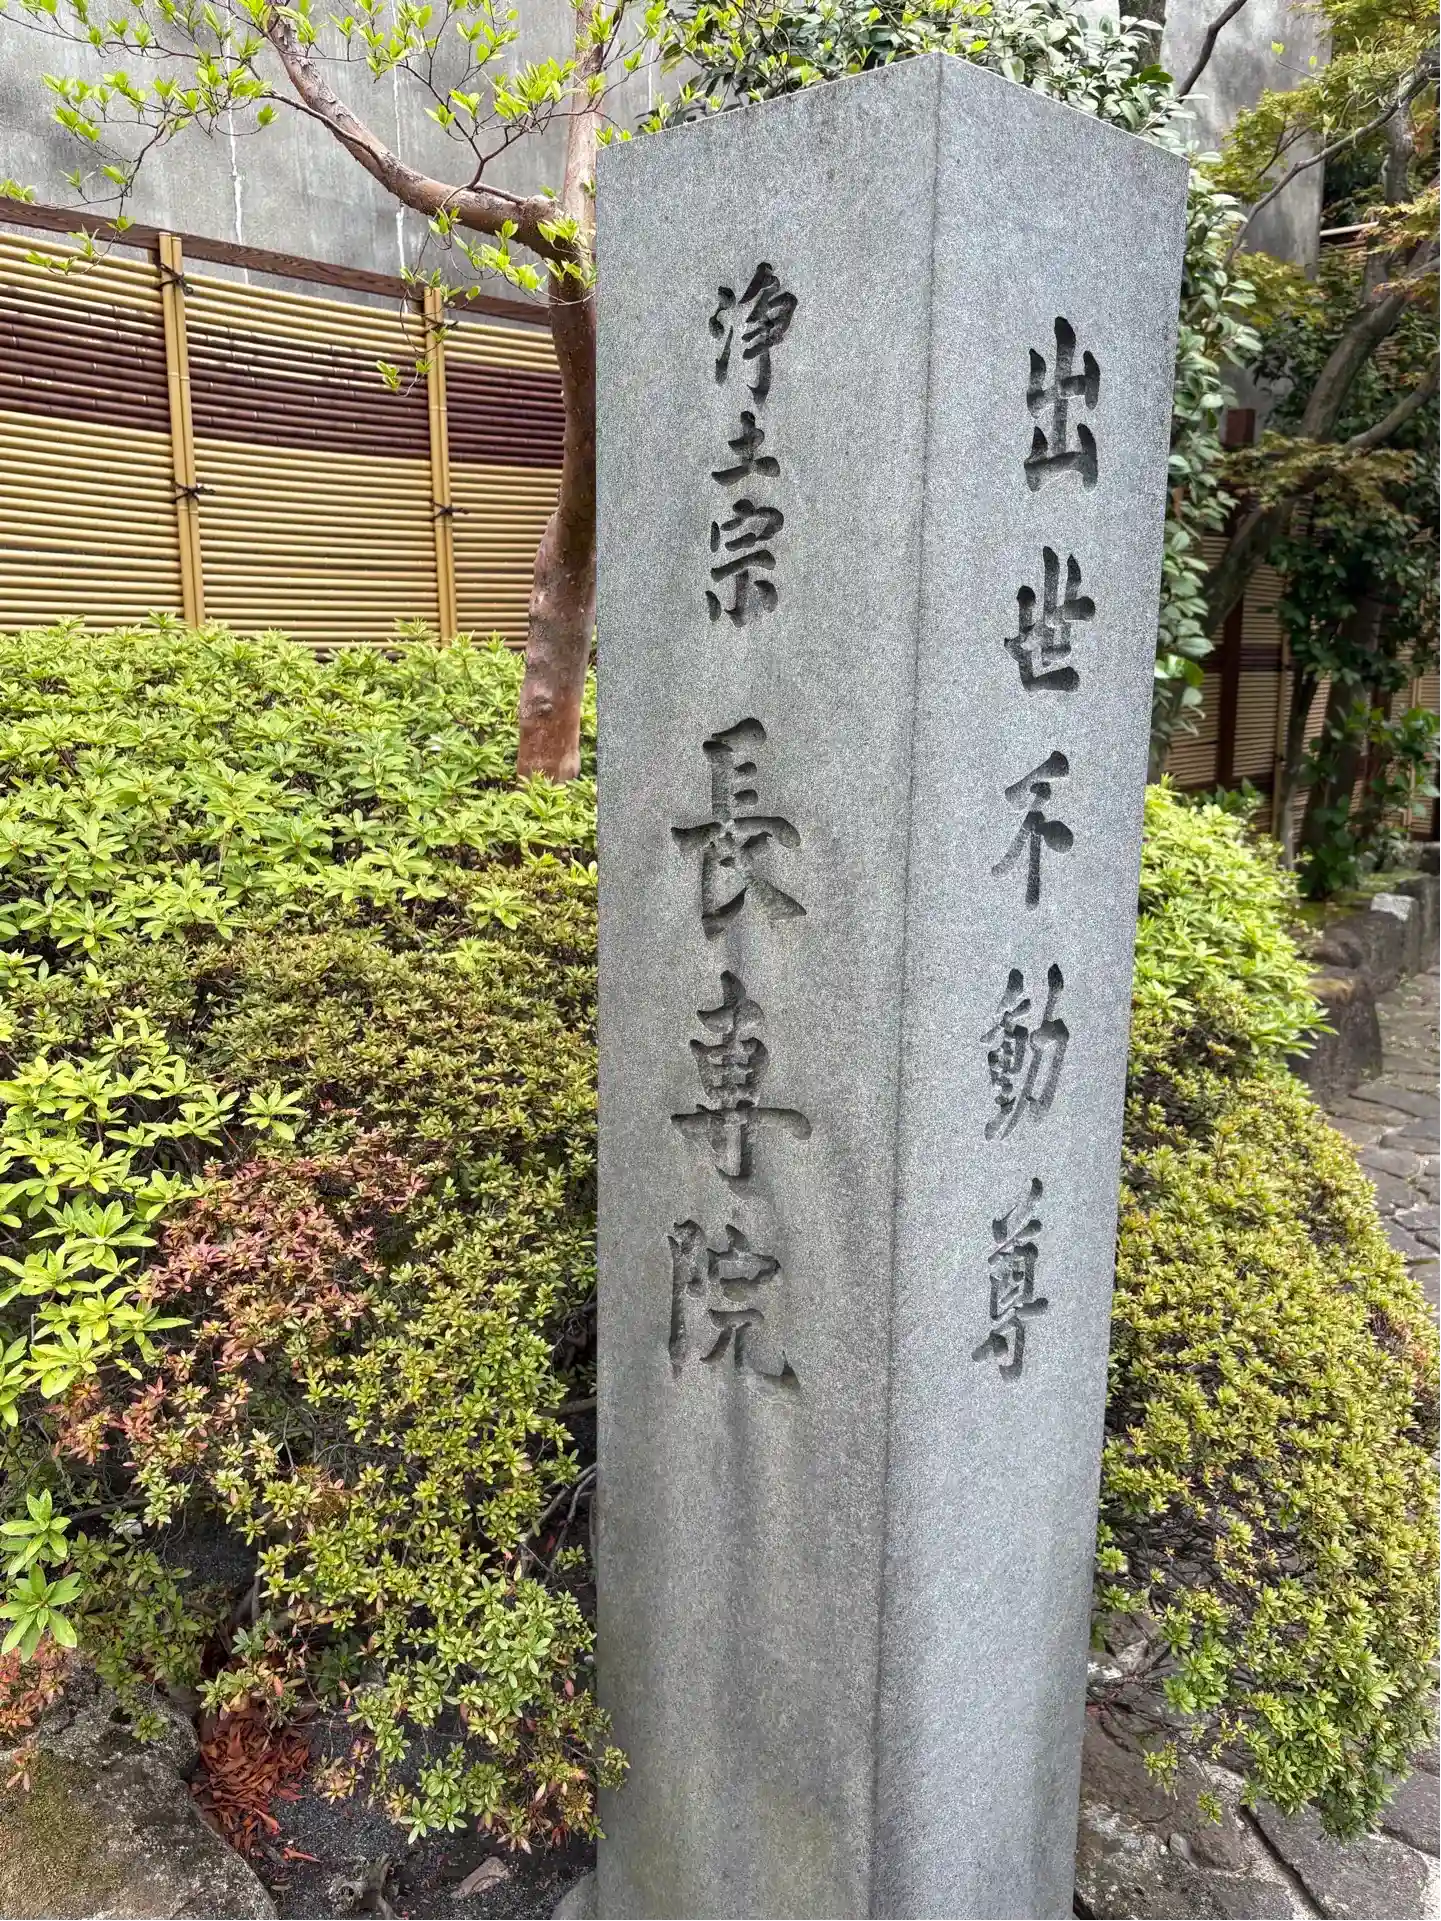 出世不動尊
浄土宗 長専院